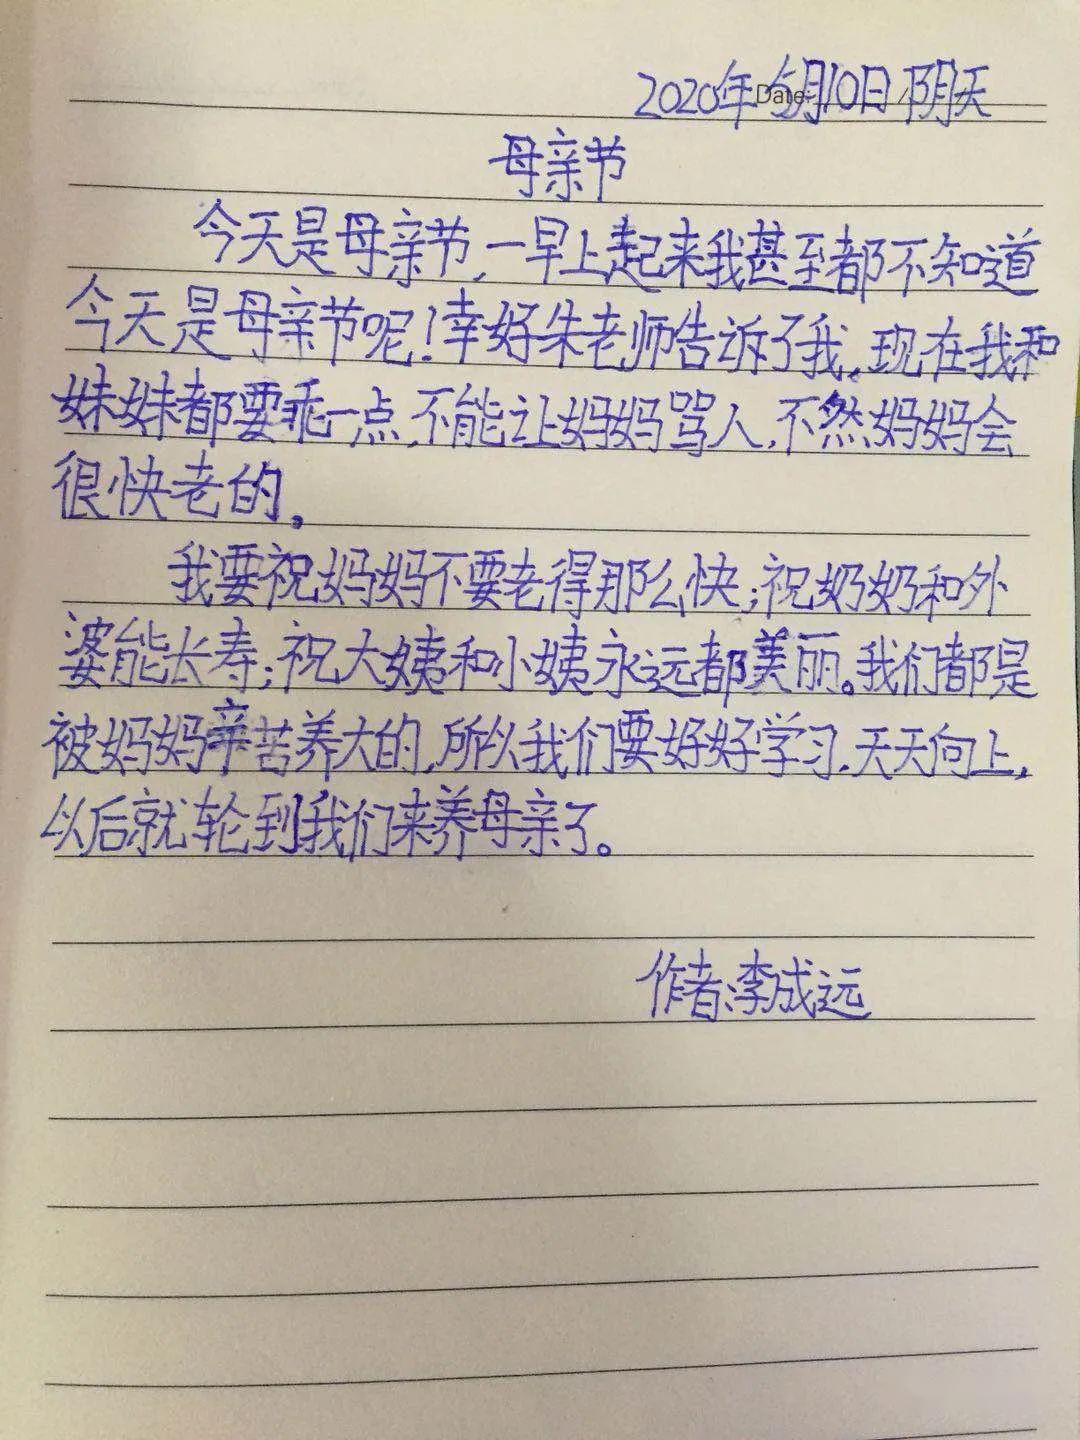 2020年5月10日 阴天
Date:
母亲节
今天是母亲节,一早上起来我甚至都不知道
今天是母亲节呢!幸好朱老师告诉了我,现在我和
妹妹都要乖一点,不能让妈妈骂人,不然妈妈会
很快老的。
我要祝妈妈不要老得那么快;祝奶奶和外
婆能长寿;祝大姨和小姨永远都美丽。我们都是
被妈妈辛苦养大的,所以我们要好好学习,天天向上,
以后就轮到我们来养母亲了。
作者:李成远